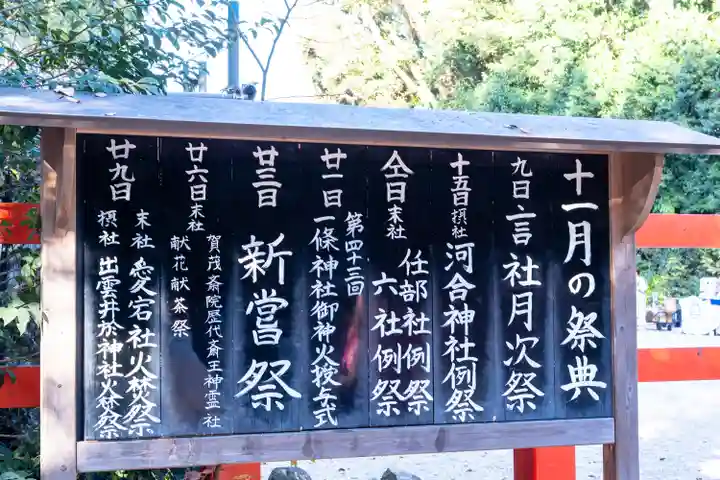 十一月の祭典
九日 二言社月次祭
十五日 摂社 河合神社例祭
末社 任部社例祭
六社例祭
第四十三回
廿一日 一條神社御神火授与式
廿三日 新嘗祭
廿六日 末社 賀茂斎院歴代斎王神霊社
献花献茶祭
廿九日 末社 愛宕社火焚祭
摂社 出雲井於神社火焚祭